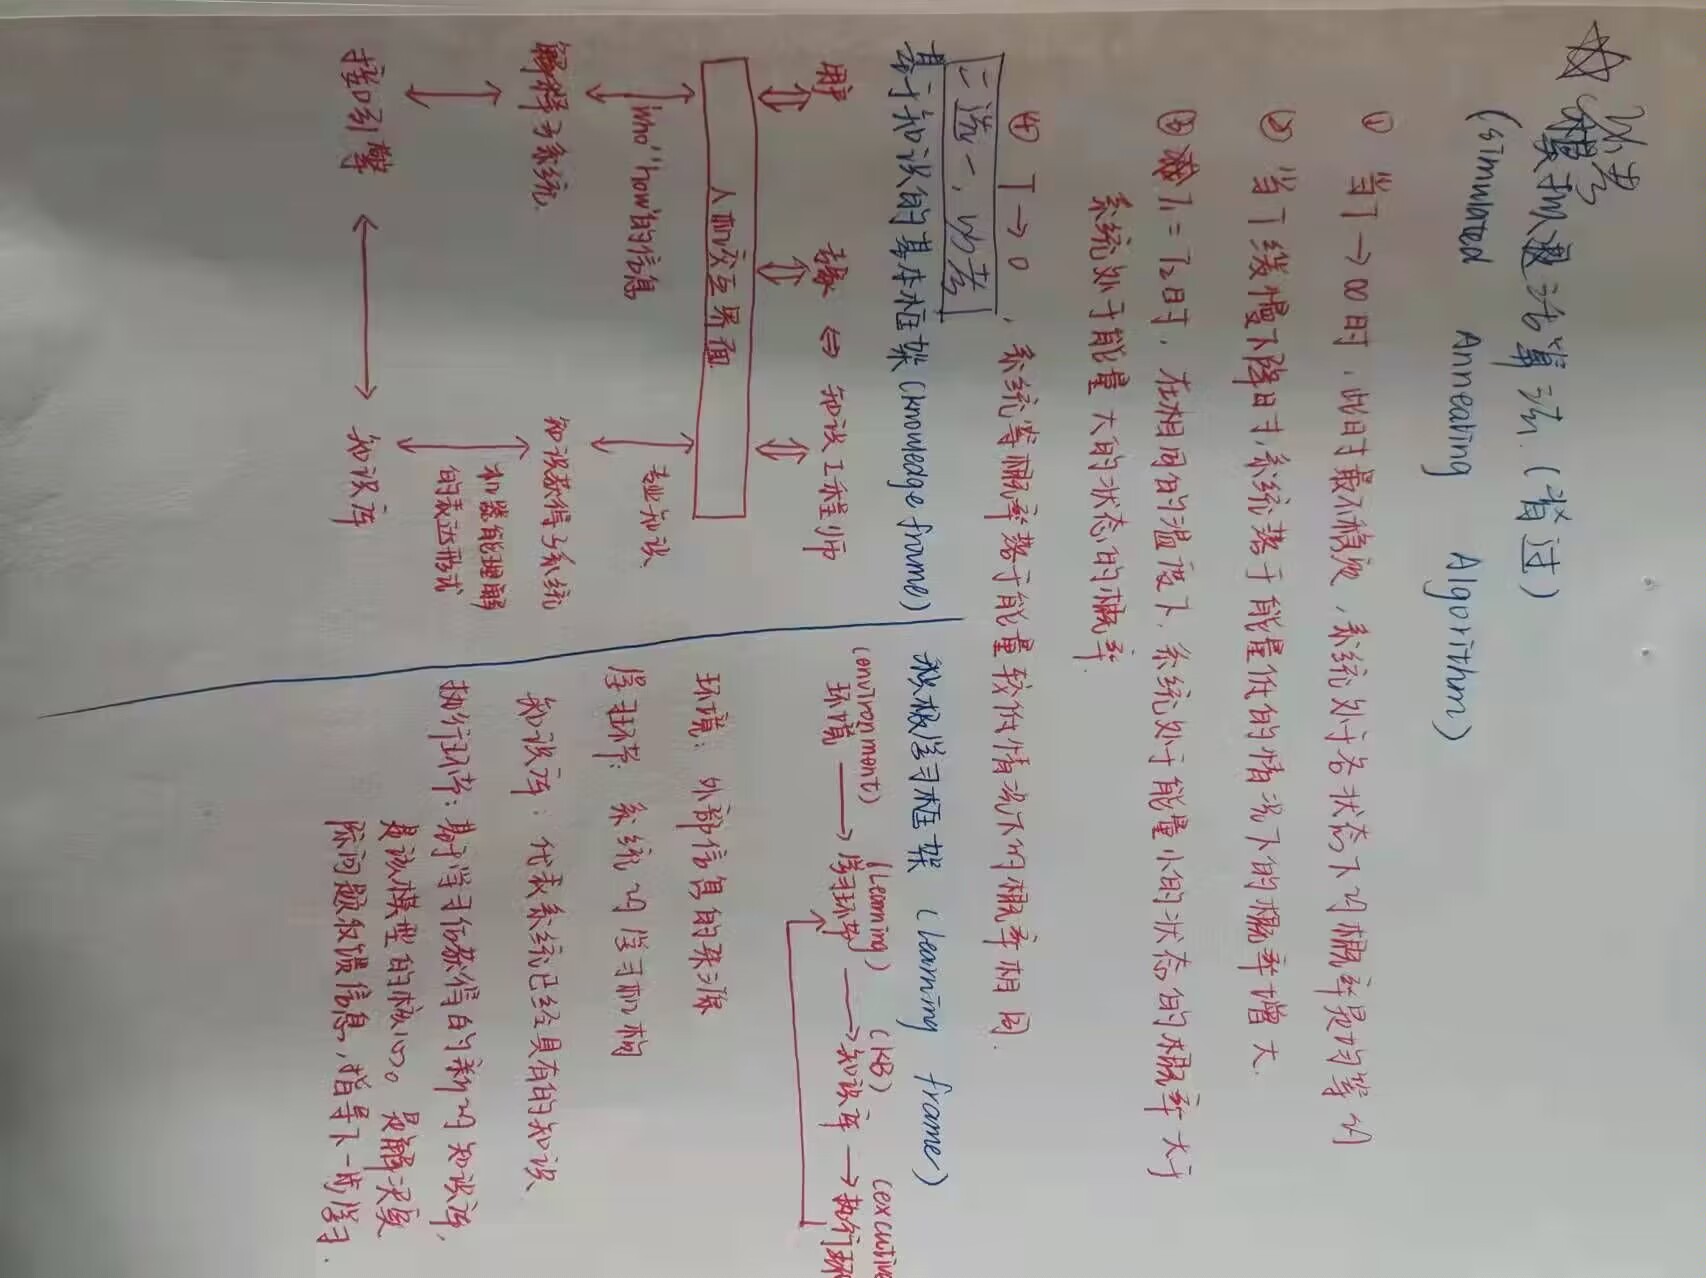 必考
模拟退活算法(背过)
(simulated Annealing Algorithm)
① 当T→∞时,此时最不稳定,系统处于各状态下的概率是均等的
② 当T缓慢下降时,系统落于能量低的情况下的概率增大.
③ T₁=T₂时,在相同的温度下,系统处于能量小的状态的概率大于
系统处于能量大的状态的概率.
④ T→0,系统等概率落于能量较低情况下的概率相同.
二选一,必考
基于知识的基本框架(knowledge frame)
用户 专家 ⇔ 知识工程师
人机交互界面
"who""how"的信息 专业知识
解释子系统 知识获得子系统
机器能理解
的表达形式
接口引擎 ↔ 知识库
积极学习框架 (learning frame)
(environment) (Learning) (KB) (excutive
环境 → 学习环节 → 知识库 → 执行环
环境: 外部信息的来源
学习环节: 系统的学习机构
知识库: 代表系统已经具有的知识
执行环节: 基于学习后获得的新的知识库,
是该模型的核心。是解决实
际问题收馈信息,指导下一步学习.